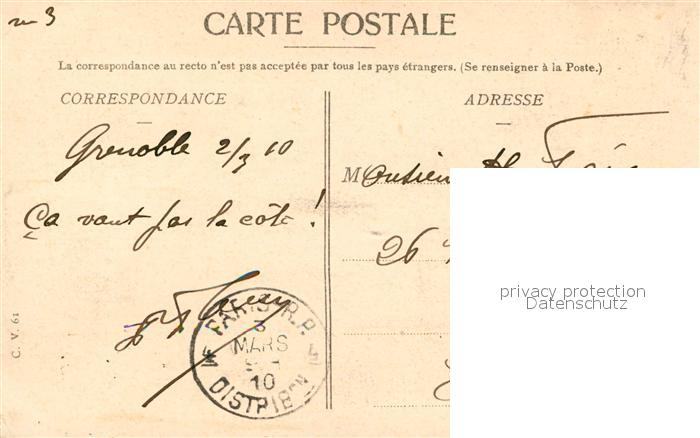 CARTE POSTALE
La correspondance au recto n'est pas acceptée par tous les pays étrangers. (Se renseigner à la Poste.)
CORRESPONDANCE
Grenoble 2/3 10
Ça vaut pas la côte !
C. V. 61
PARIS R.P.
3
MARS
10
DISTRIBON
ADRESSE
Monsieur
26
privacy protection
Datenschutz